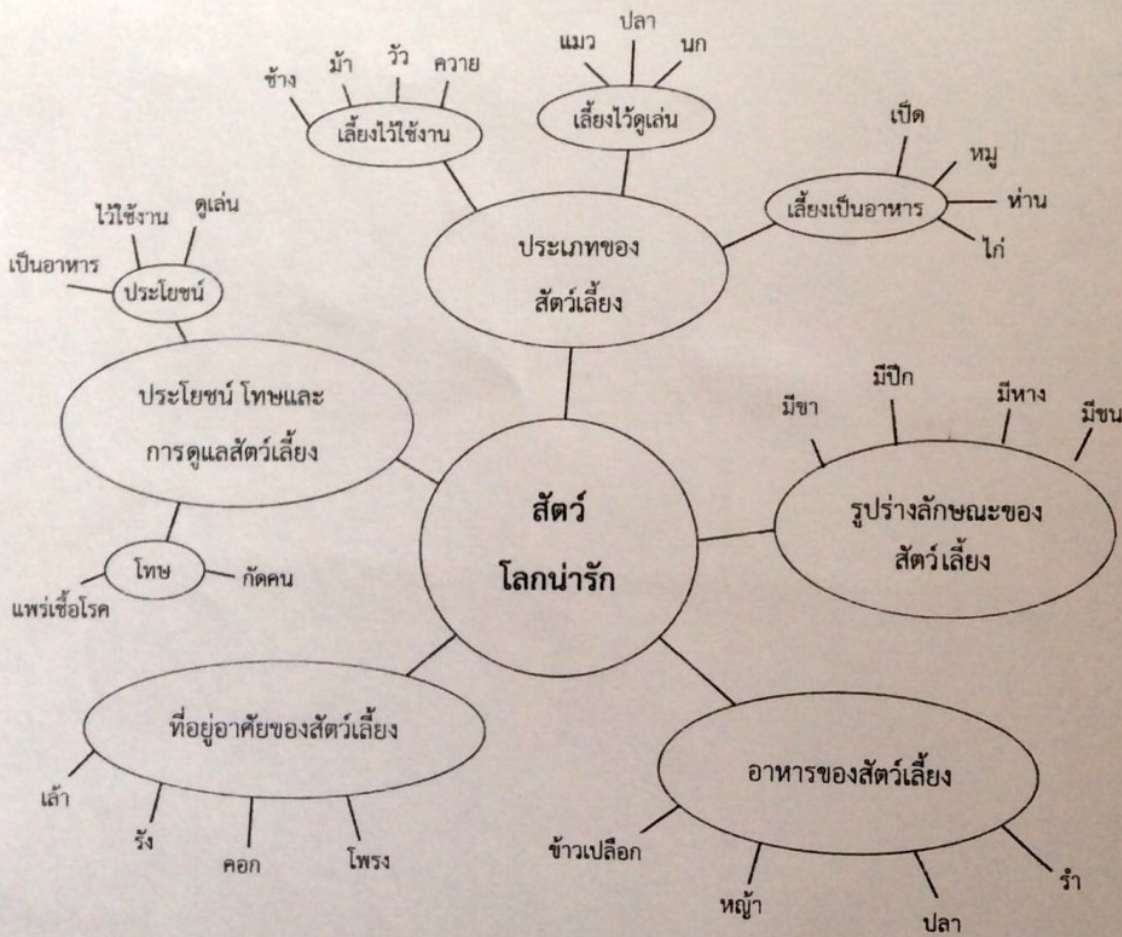 สัตว์
โลกน่ารัก
ประเภทของ
สัตว์เลี้ยง
เลี้ยงไว้ใช้งาน
ช้าง
ม้า
วัว
ควาย
เลี้ยงไว้ดูเล่น
แมว
ปลา
นก
เลี้ยงเป็นอาหาร
เป็ด
หมู
ห่าน
ไก่
รูปร่างลักษณะของ
สัตว์เลี้ยง
มีขา
มีปีก
มีหาง
มีขน
อาหารของสัตว์เลี้ยง
ข้าวเปลือก
หญ้า
ปลา
รำ
ที่อยู่อาศัยของสัตว์เลี้ยง
เล้า
รัง
คอก
โพรง
ประโยชน์ โทษและ
การดูแลสัตว์เลี้ยง
ประโยชน์
เป็นอาหาร
ไว้ใช้งาน
ดูเล่น
โทษ
แพร่เชื้อโรค
กัดคน